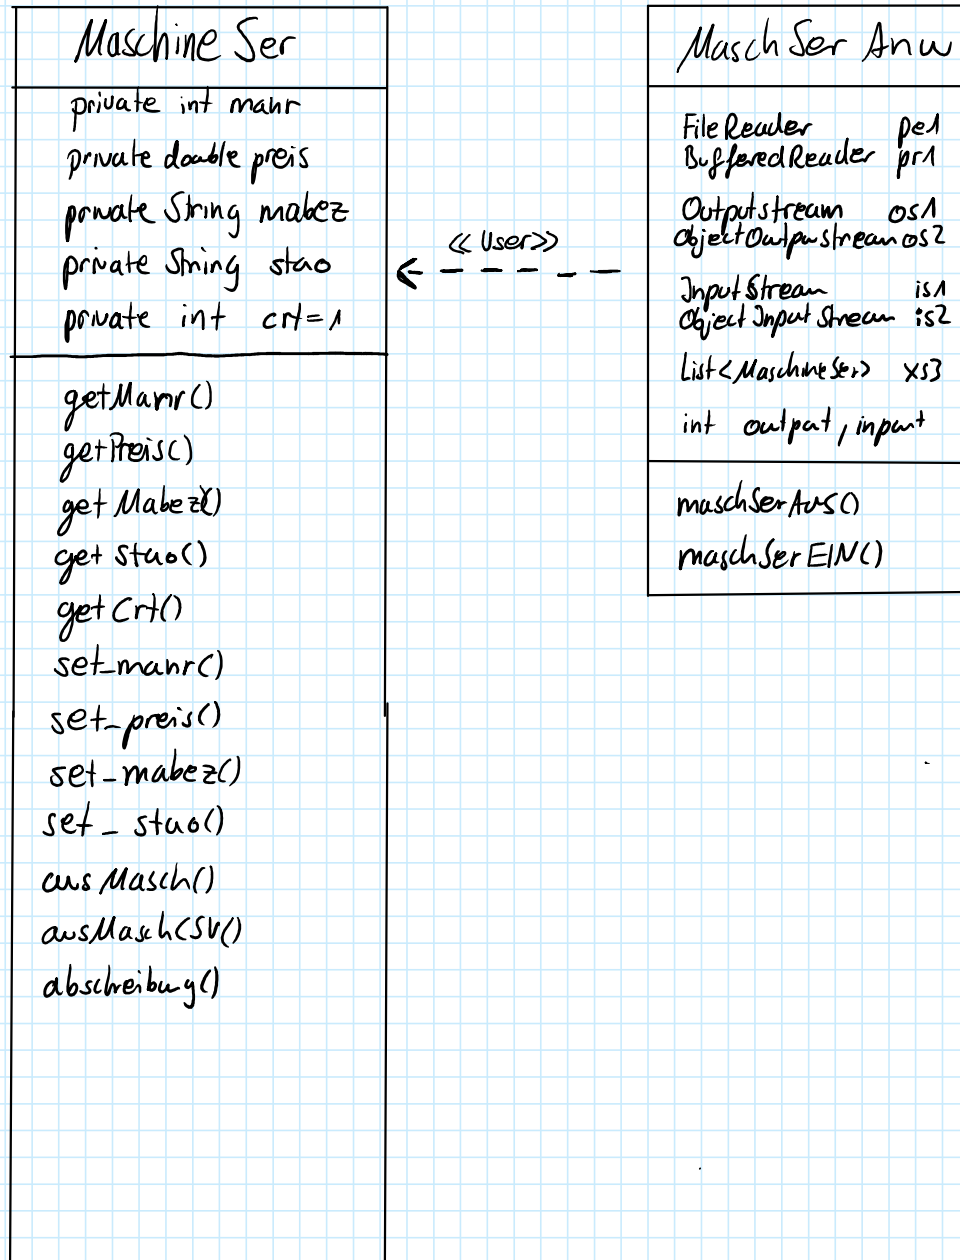 Maschine Ser
private int manr
private double preis
private String mabez
private String stao
private int crt=1
getManr()
getPreis()
getMabez()
get stao()
getCrt()
set_manr()
set_preis()
set_mabez()
set_stao()
ausMasch()
ausMaschCSV()
abschreibung()
<< User >>
MaschSer Anw
FileReader pe1
BufferedReader pr1
Outputstream os1
ObjectOutpustream os2
InputStream is1
ObjectInputStream is2
List<MaschineSer> xs3
int output, input
maschSerAus()
maschSerEIN()